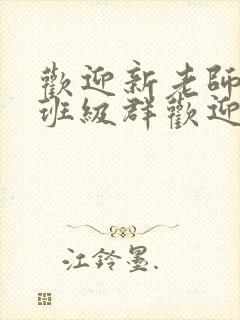 歡迎新老師
班級群歡迎
江鈴墨.